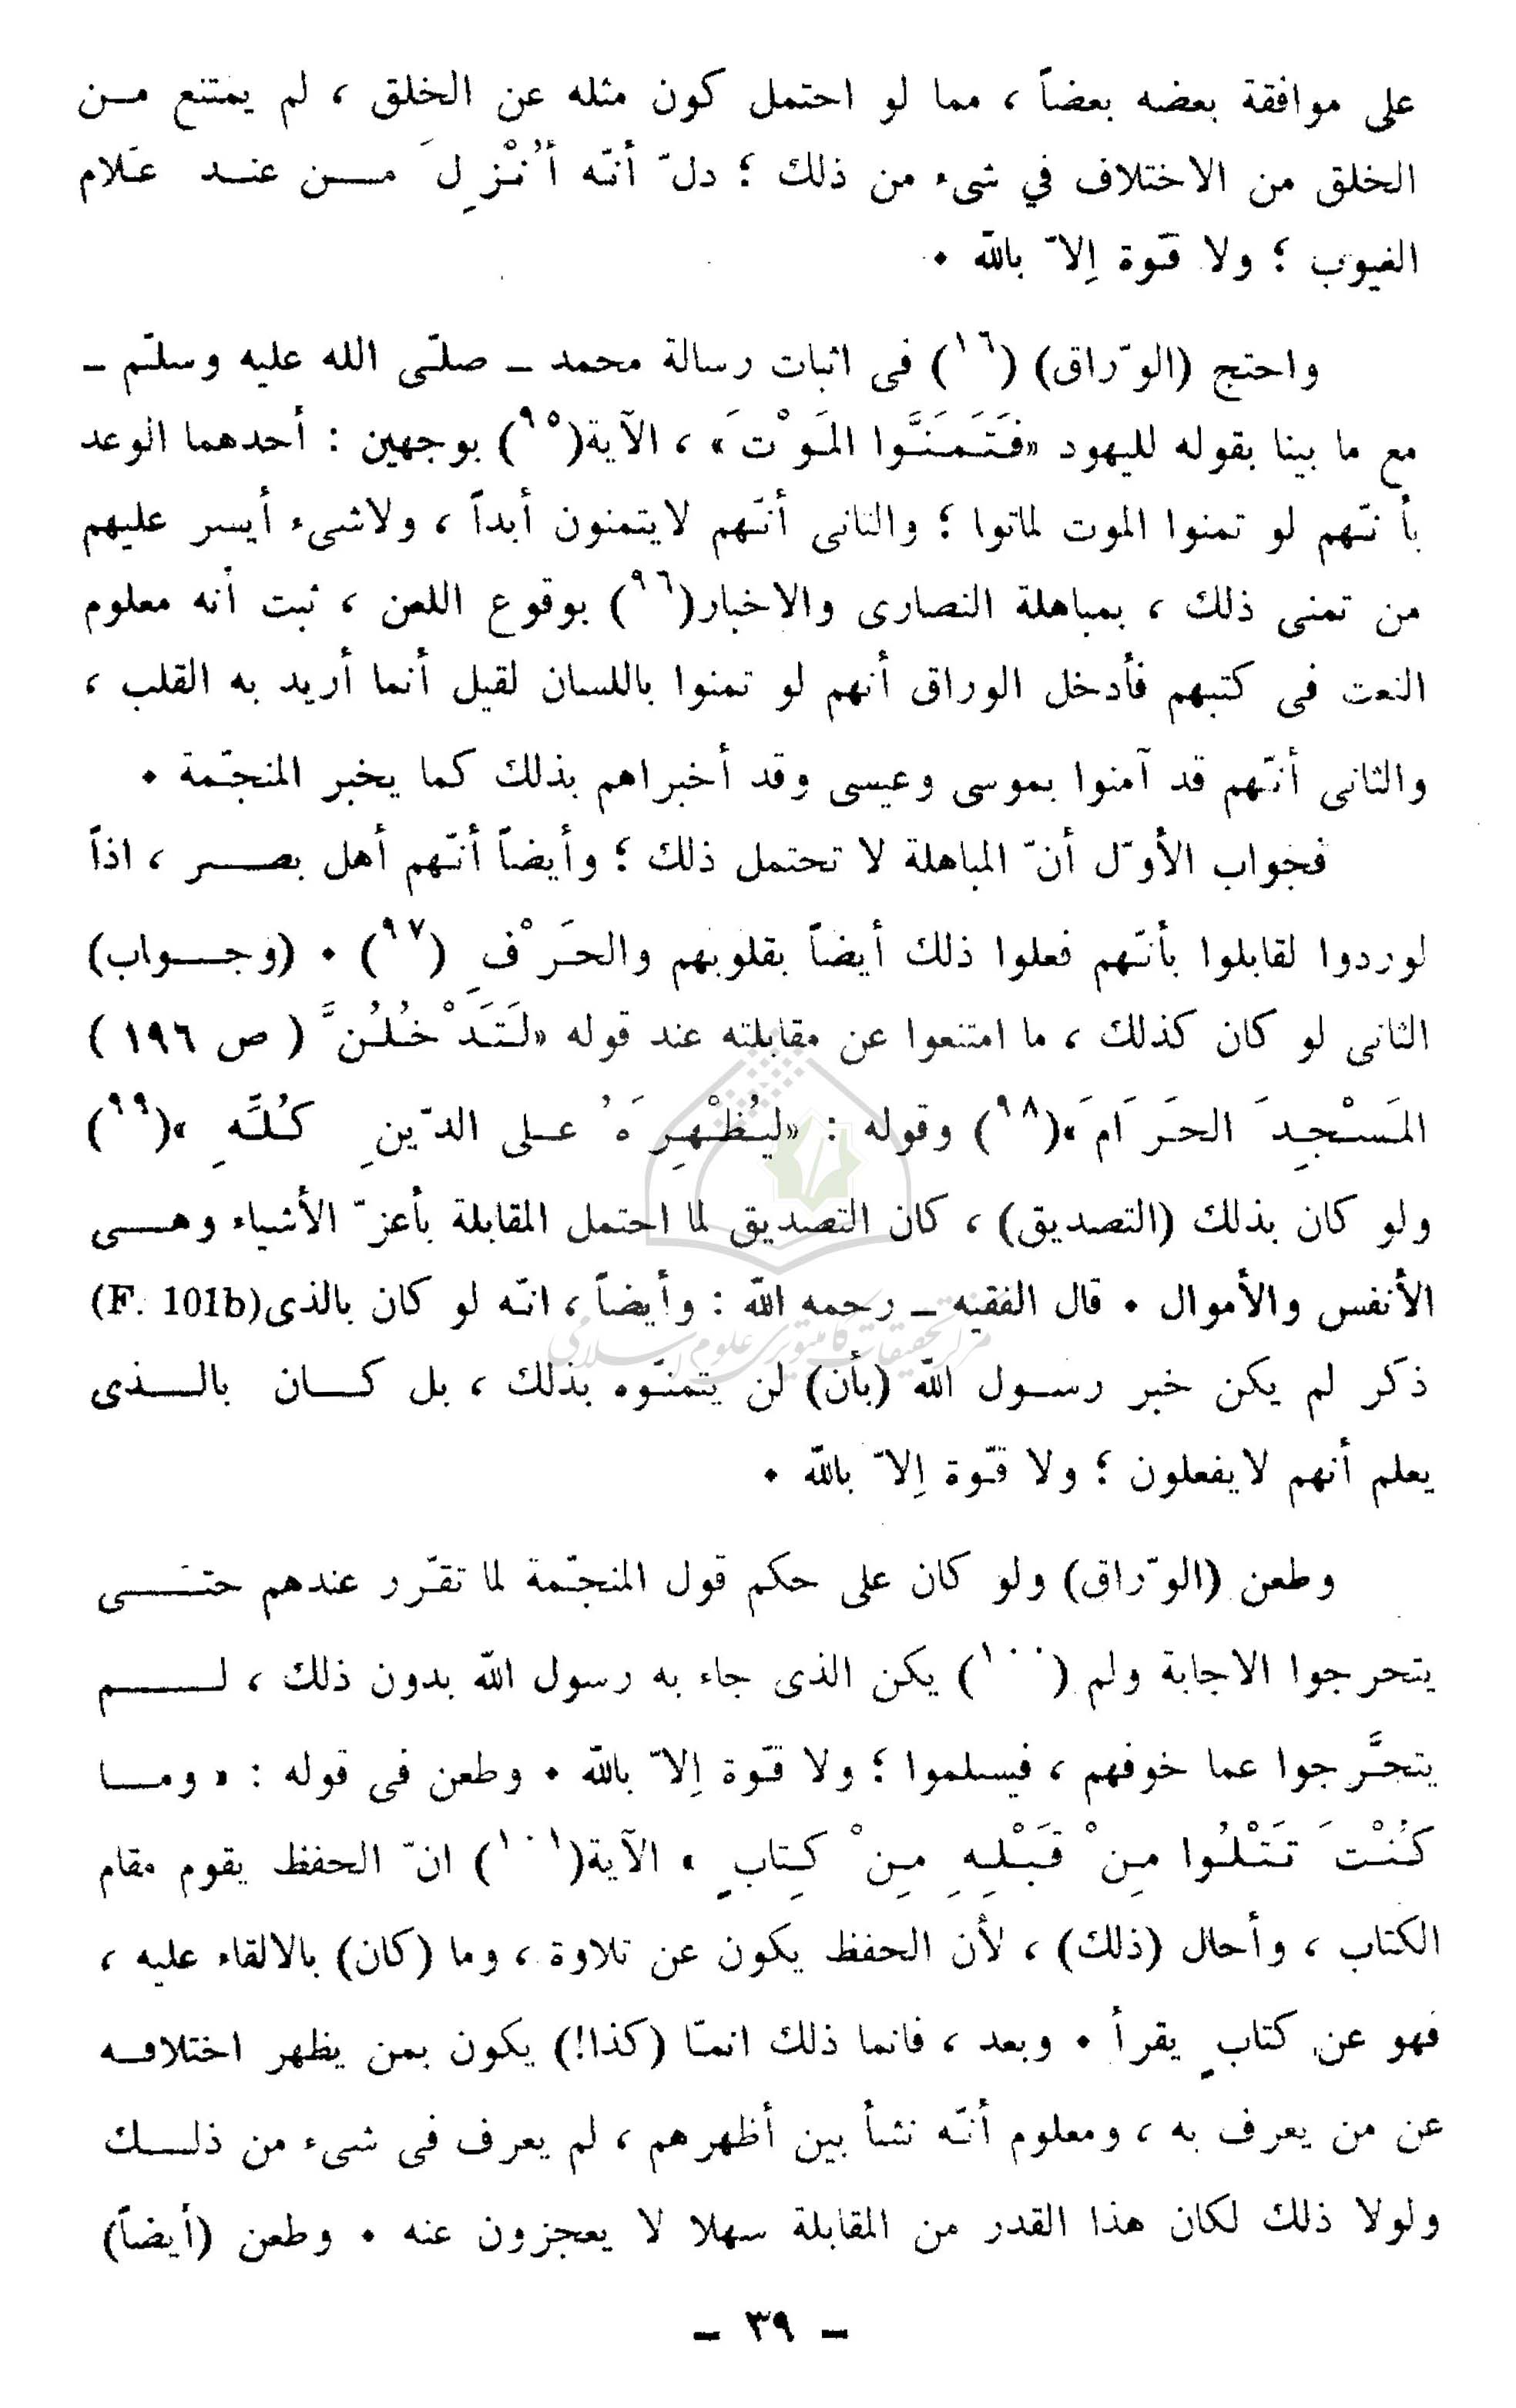 على موافقة بعضه بعضاً ، مما لو احتمل كون مثله عن الخلق ، لم يمتنع مـن
الخلق من الاختلاف في شىء من ذلك ؛ دلّ أنّه أُنْزِلَ مــن عنـد عَلام
الغيوب ؛ ولا قوّة إلاّ بالله ٠
واحتج (الورّاق) (١٦) فى اثبات رسالة محمد ـ صلّى الله عليه وسلّم ـ
مع ما بينا بقوله لليهود «فَتَمَنَّوا المَوْتَ» ، الآية(٩٥) بوجهين : أحدهما الوعد
بأنّهم لو تمنوا الموت لماتوا ؛ والثانى أنّهم لايتمنون أبداً ، ولاشىء أيسر عليهم
من تمنى ذلك ، بمباهلة النصارى والاخبار(٩٦) بوقوع اللعن ، ثبت أنه معلوم
النعت فى كتبهم فأدخل الوراق أنهم لو تمنوا باللسان لقيل أنما أريد به القلب ،
والثانى أنّهم قد آمنوا بموسى وعيسى وقد أخبراهم بذلك كما يخبر المنجّمة ٠
فجواب الأوّل أنّ المباهلة لا تحتمل ذلك ؛ وأيضاً أنّهم أهل بصــر ، اذاً
لوردوا لقابلوا بأنّهم فعلوا ذلك أيضاً بقلوبهم والحَرْفِ (٩٧) ٠ (وجــواب)
الثانى لو كان كذلك ، ما امتنعوا عن مقابلته عند قوله «لَتَدْخُلُنَّ ( ص ١٩٦ )
المَسْجِدَ الحَرَامَ»(٩٨) وقوله : «ليُظْهِرَهُ عـلى الدّينِ كُلِّهِ »(٩٩)
ولو كان بذلك (التصديق) ، كان التصديق لما احتمل المقابلة بأعزّ الأشياء وهــى
الأنفس والأموال ٠ قال الفقيه ـ رحمه الله : وأيضاً ، انّه لو كان بالذى(F. 101b)
ذكر لم يكن خبر رسـول الله (بأن) لن يتمنّوه بذلك ، بل كــان بالــذى
يعلم أنهم لايفعلون ؛ ولا قوّة إلاّ بالله ٠
وطعن (الورّاق) ولو كان على حكم قول المنجّمة لما تقرّر عندهم حتــى
يتحرجوا الاجابة ولم (١٠٠) يكن الذى جاء به رسول الله بدون ذلك ، لــم
يتحرَّجوا عما خوفهم ، فيسلموا ؛ ولا قوّة إلاّ بالله ٠ وطعن فى قوله : « ومــا
كُنْتَ تَتْلُوا مِنْ قَبْلِهِ مِنْ كِتابٍ » الآية(١٠١) انّ الحفظ يقوم مقام
الكتاب ، وأحال (ذلك) ، لأن الحفظ يكون عن تلاوة ، وما (كان) بالالقاء عليه ،
فهو عن كتابٍ يقرأ ٠ وبعد ، فانما ذلك انمّا (كذا!) يكون بمن يظهر اختلافـه
عن من يعرف به ، ومعلوم أنّه نشأ بين أظهرهم ، لم يعرف فى شىء من ذلــك
ولولا ذلك لكان هذا القدر من المقابلة سهلا لا يعجزون عنه ٠ وطعن (أيضاً)
ـ ٣٩ ـ
مركز تحقيقات كامپيوترى علوم اسلامى